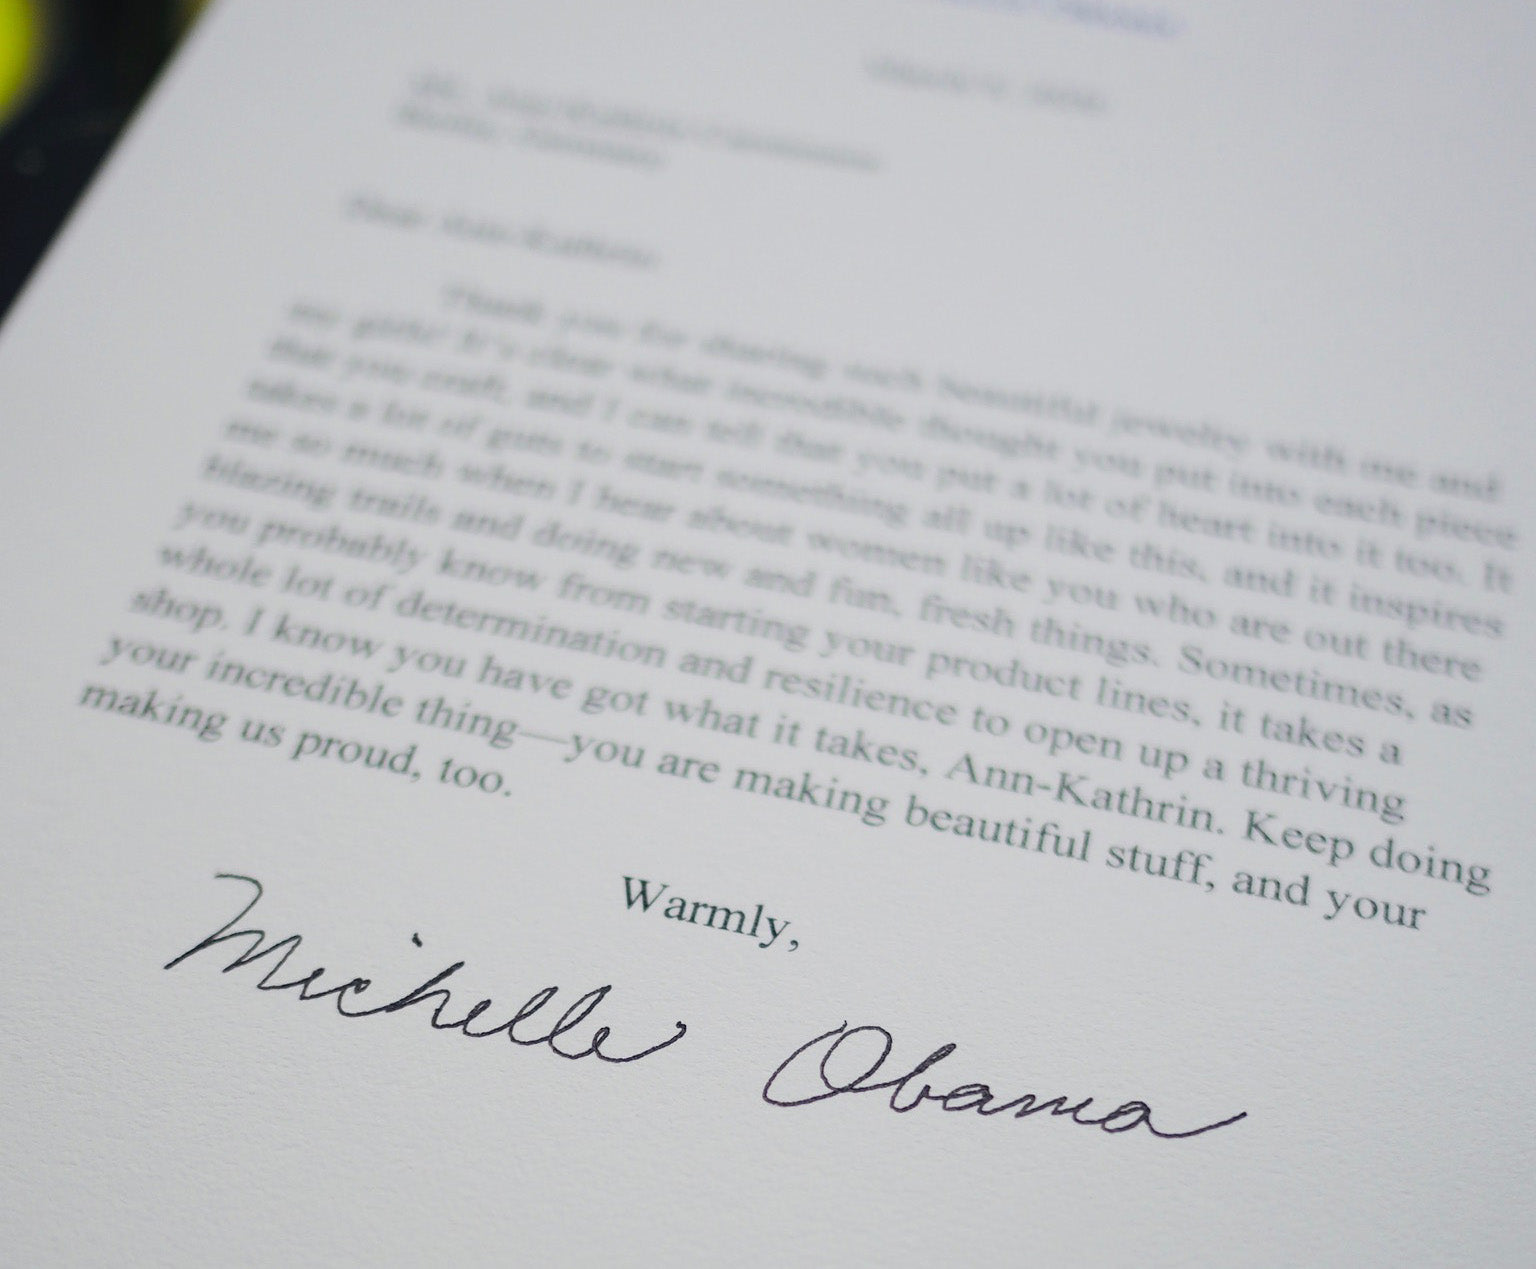 Dear Ann-Kathrin,
Thank you for sharing such beautiful jewelry with me and
my girls! It's clear what incredible thought you put into each piece
that you craft, and I can tell that you put a lot of heart into it too. It
takes a lot of guts to start something all up like this, and it inspires
me so much when I hear about women like you who are out there
blazing trails and doing new and fun, fresh things. Sometimes, as
you probably know from starting your product lines, it takes a
whole lot of determination and resilience to open up a thriving
shop. I know you have got what it takes, Ann-Kathrin. Keep doing
your incredible thing—you are making beautiful stuff, and your
making us proud, too.
Warmly,
Michelle Obama